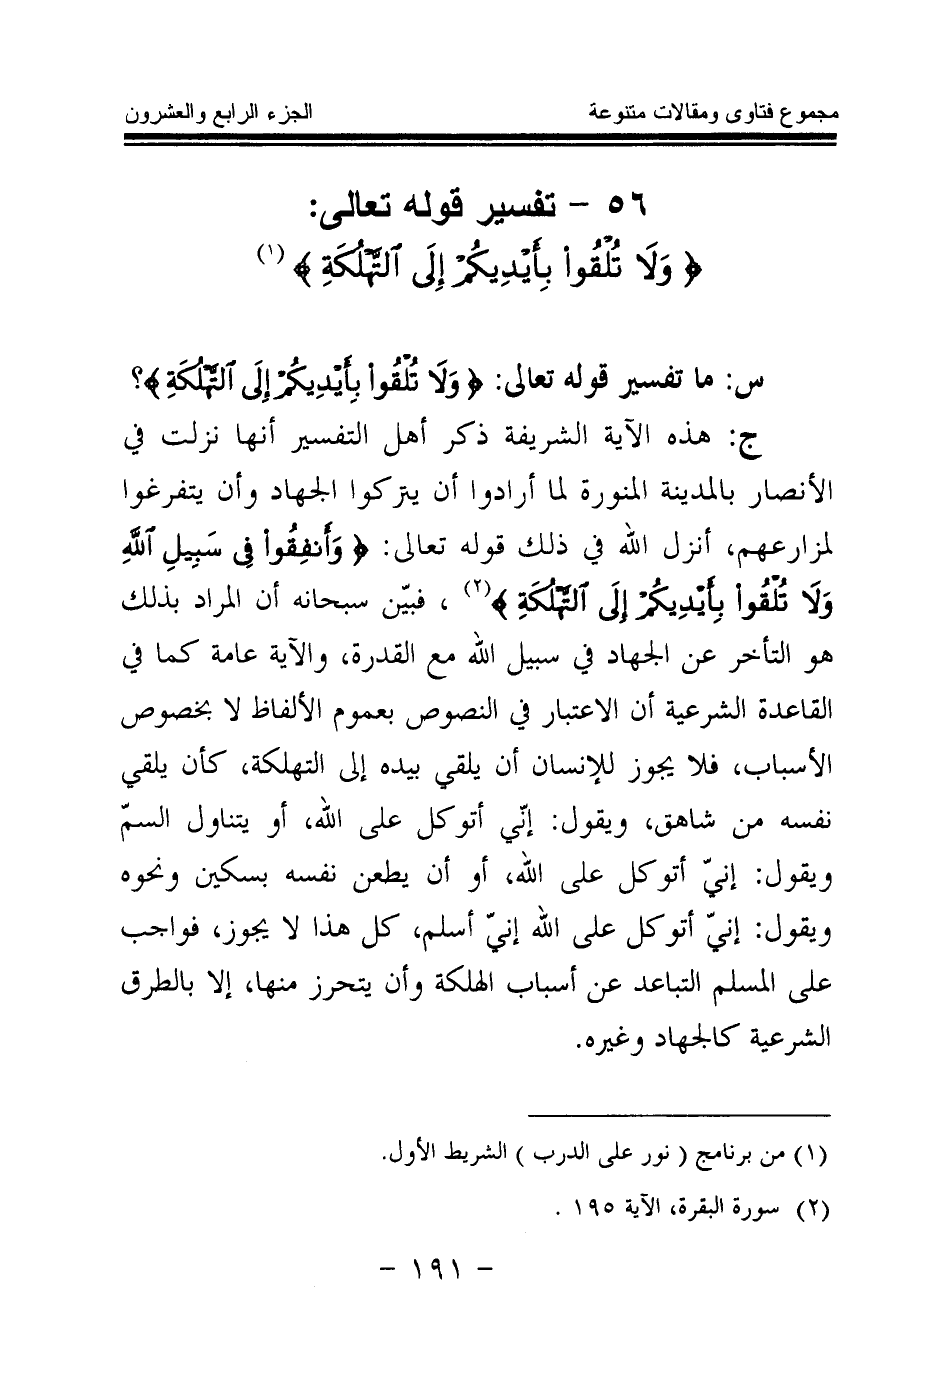 مجموع فتاوى ومقالات متنوعة الجزء الرابع والعشرون
٥٦ - تفسير قوله تعالى:
﴿ وَلَا تُلْقُوا۟ بِأَيْدِيكُمْ إِلَى ٱلتَّهْلُكَةِ ﴾ (١)
س: ما تفسير قوله تعالى: ﴿ وَلَا تُلْقُوا۟ بِأَيْدِيكُمْ إِلَى ٱلتَّهْلُكَةِ ﴾؟
ج: هذه الآية الشريفة ذكر أهل التفسير أنها نزلت في
الأنصار بالمدينة المنورة لما أرادوا أن يتركوا الجهاد وأن يتفرغوا
لمزارعهم، أنزل الله في ذلك قوله تعالى: ﴿ وَأَنفِقُوا۟ فِى سَبِيلِ ٱللَّهِ
وَلَا تُلْقُوا۟ بِأَيْدِيكُمْ إِلَى ٱلتَّهْلُكَةِ ﴾(٢) ، فبيّن سبحانه أن المراد بذلك
هو التأخر عن الجهاد في سبيل الله مع القدرة، والآية عامة كما في
القاعدة الشرعية أن الاعتبار في النصوص بعموم الألفاظ لا بخصوص
الأسباب، فلا يجوز للإنسان أن يلقي بيده إلى التهلكة، كأن يلقي
نفسه من شاهق، ويقول: إنّي أتوكل على الله، أو يتناول السمّ
ويقول: إنيّ أتوكل على الله، أو أن يطعن نفسه بسكين ونحوه
ويقول: إنيّ أتوكل على الله إنيّ أسلم، كل هذا لا يجوز، فواجب
على المسلم التباعد عن أسباب الهلكة وأن يتحرز منها، إلا بالطرق
الشرعية كالجهاد وغيره.
(١) من برنامج ( نور على الدرب ) الشريط الأول.
(٢) سورة البقرة، الآية ١٩٥ .
- ١٩١ -